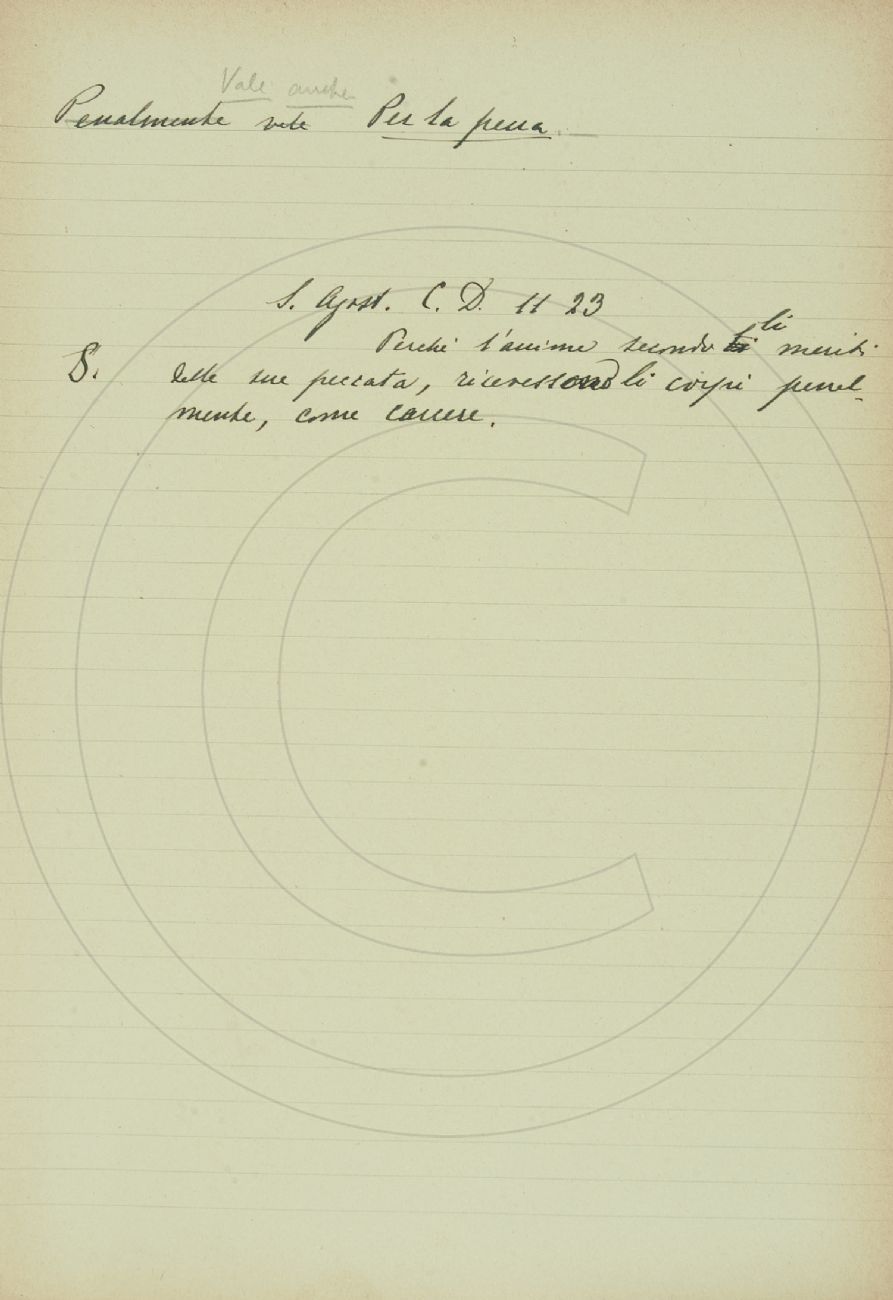 Vale anche
Penalmente vale Per la pena
S. Agost. C. D. 11 23
Perché l'anime secondo li meriti
S. delle sue peccata, ricevessono li corpi penal-
mente, come carcere.